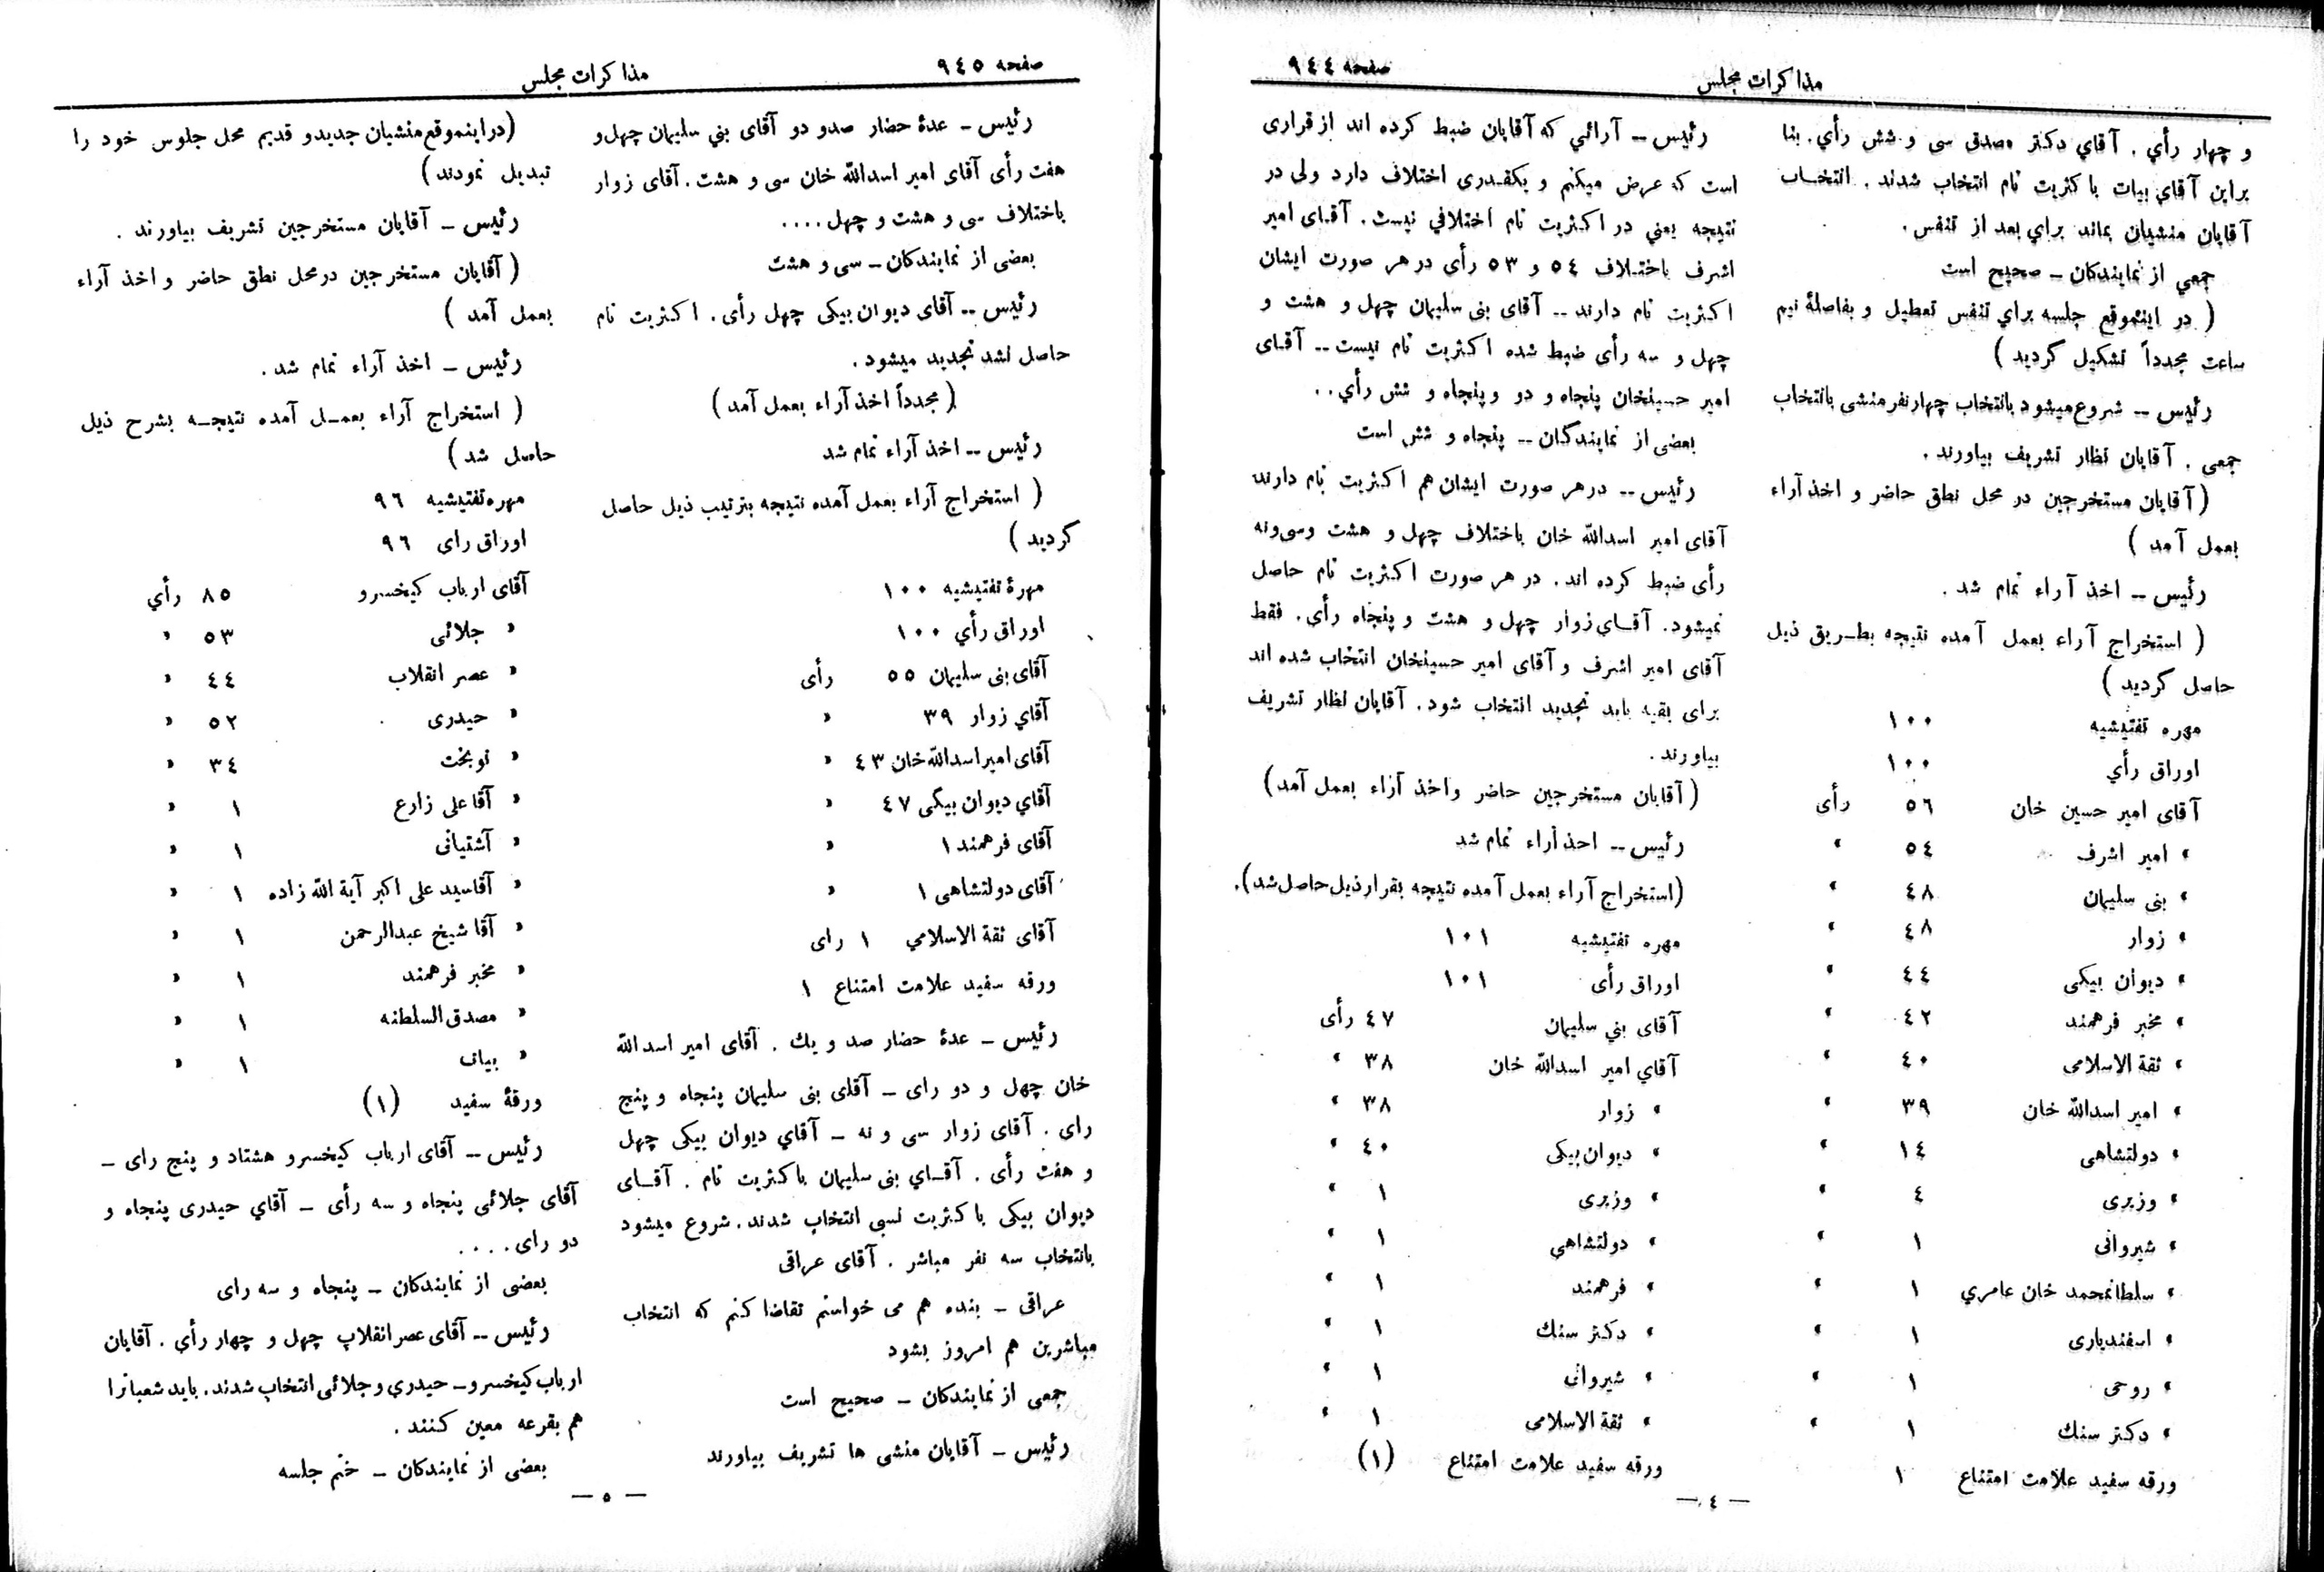 صفحه ٩٤٤
مذاکرات مجلس
و چهار رأي . آقاي دکتر مصدق سی و شش رأي . بنا
براین آقاي بیات باکثریت تام انتخاب شدند . انتخاب
آقایان منشیان بماند براي بعد از تنفس .
جمعي از نمایندکان ــ صحیح است
( در اینموقع جلسه براي تنفس تعطیل و بفاصلهٔ نیم
ساعت مجدداً تشکیل گردید )
رئیس ــ شروع میشود بانتخاب چهار نفر منشی بانتخاب
جمعی . آقایان نظار تشریف بیاورند .
( آقایان مستخرجین در محل نطق حاضر و اخذ آراء
بعمل آمد )
رئیس ــ اخذ آراء تمام شد .
( استخراج آراء بعمل آمده نتیجه بطریق ذیل
حاصل گردید )
مهره تفتیشیه ١٠٠
اوراق رأي ١٠٠
آقای امیر حسین خان ٥٦ رأی
» امیر اشرف ٥٤ »
» بنی سلیمان ٤٨ »
» زوار ٤٨ »
» دیوان بیکی ٤٤ »
» مخبر فرهمند ٤٢ »
» ثقة الاسلامی ٤٠ »
» امیر اسدالله خان ٣٩ »
» دولتشاهی ١٤ »
» وزیری ٤ »
» شیروانی ١ »
» سلطانمحمد خان عامري ١ »
» اسفندیاری ١ »
» روحی ١ »
» دکتر سنك ١ »
ورقه سفید علامت امتناع ١
رئیس ــ آرائي که آقایان ضبط کرده اند از قراری
است که عرض میکنم و یکقدری اختلاف دارد ولی در
نتیجه یعني در اکثریت تام اختلافي نیست . آقای امیر
اشرف باختلاف ٥٤ و ٥٣ رأی در هر صورت ایشان
اکثریت تام دارند ــ آقای بنی سلیمان چهل و هشت و
چهل و سه رأی ضبط شده اکثریت تام نیست ــ آقای
امیر حسینخان پنجاه و دو و پنجاه و شش رأي . .
بعضی از نمایندگان ــ پنجاه و شش است
رئیس ــ در هر صورت ایشان هم اکثریت تام دارند
آقای امیر اسدالله خان باختلاف چهل و هشت و سی و نه
رأی ضبط کرده اند . در هر صورت اکثریت تام حاصل
نمیشود . آقای زوار چهل و هشت و پنجاه رأی . فقط
آقای امیر اشرف و آقای امیر حسینخان انتخاب شده اند
برای بقیه باید تجدید انتخاب شود . آقایان نظار تشریف
بیاورند .
(آقایان مستخرجین حاضر و اخذ آراء بعمل آمد)
رئیس ــ اخذ آراء تمام شد
(استخراج آراء بعمل آمده نتیجه بقرار ذیل حاصل شد) .
مهره تفتیشیه ١٠١
اوراق رأی ١٠١
آقای بني سلیمان ٤٧ رأی
آقاي امیر اسدالله خان ٣٨ »
» زوار ٣٨ »
» دیوان بیکی ٤٠ »
» وزیری ١ »
» دولتشاهي ١ »
» فرهمند ١ »
» دکتر سنك ١ »
» شیروانی ١ »
» ثقة الاسلامی ١ »
ورقه سفید علامت امتناع (١)
— ٤ —
صفحه ٩٤٥
مذاکرات مجلس
رئیس ــ عدهٔ حضار صد و دو آقای بني سلیمان چهل و
هفت رأی آقای امیر اسدالله خان سی و هشت . آقای زوار
باختلاف سی و هشت و چهل . . . .
بعضی از نمایندکان ــ سی و هشت
رئیس ــ آقای دیوان بیکی چهل رأی . اکثریت تام
حاصل نشد تجدید میشود .
( مجدداً اخذ آراء بعمل آمد )
رئیس ــ اخذ آراء تمام شد
( استخراج آراء بعمل آمده نتیجه بترتیب ذیل حاصل
گردید )
مهرهٔ تفتیشیه ١٠٠
اوراق رأي ١٠٠
آقای بنی سلیمان ٥٥ رأی
آقاي زوار ٣٩ »
آقای امیر اسدالله خان ٤٣ »
آقاي دیوان بیگی ٤٧ »
آقای فرهمند ١ »
آقای دولتشاهی ١ »
آقای ثقة الاسلامي ١ رای
ورقه سفید علامت امتناع ١
رئیس ــ عدهٔ حضار صد و یك . آقای امیر اسدالله
خان چهل و دو رای ــ آقای بنی سلیمان پنجاه و پنج
رای . آقای زوار سی و نه ــ آقاي دیوان بیکی چهل
و هفت رأی . آقای بنی سلیمان باکثریت تام . آقای
دیوان بیکی باکثریت نسبی انتخاب شدند . شروع میشود
بانتخاب سه نفر مباشر . آقای عراقی
عراقی ــ بنده هم می خواستم تقاضا کنم که انتخاب
مباشرین هم امروز بشود
جمعی از نمایندکان ــ صحیح است
رئیس ــ آقایان منشی ها تشریف بیاورند
(در اینموقع منشیان جدید و قدیم محل جلوس خود را
تبدیل نمودند)
رئیس ــ آقایان مستخرجین تشریف بیاورند .
( آقایان مستخرجین در محل نطق حاضر و اخذ آراء
بعمل آمد )
رئیس ــ اخذ آراء تمام شد .
( استخراج آراء بعمل آمده نتیجه بشرح ذیل
حاصل شد )
مهره تفتیشیه ٩٦
اوراق رای ٩٦
آقای ارباب کیخسرو ٨٥ رأي
» جلائی ٥٣ »
» عصر انقلاب ٤٤ »
» حیدری ٥٢ »
» نوبخت ٣٤ »
» آقا علی زارع ١ »
» آشتیانی ١ »
» آقا سید علی اکبر آیة الله زاده ١ »
» آقا شیخ عبدالرحمن ١ »
» مخبر فرهمند ١ »
» مصدق السلطنه ١ »
» بیات ١ »
ورقهٔ سفید (١)
رئیس ــ آقای ارباب کیخسرو هشتاد و پنج رای ــ
آقای جلائی پنجاه و سه رأی ــ آقاي حیدری پنجاه و
دو رای . . . .
بعضی از نمایندکان ــ پنجاه و سه رای
رئیس ــ آقای عصر انقلاب چهل و چهار رأي . آقایان
ارباب کیخسرو ــ حیدري و جلائی انتخاب شدند . باید شعبانرا
هم بقرعه معین کنند .
بعضی از نمایندکان ــ ختم جلسه
— ٥ —